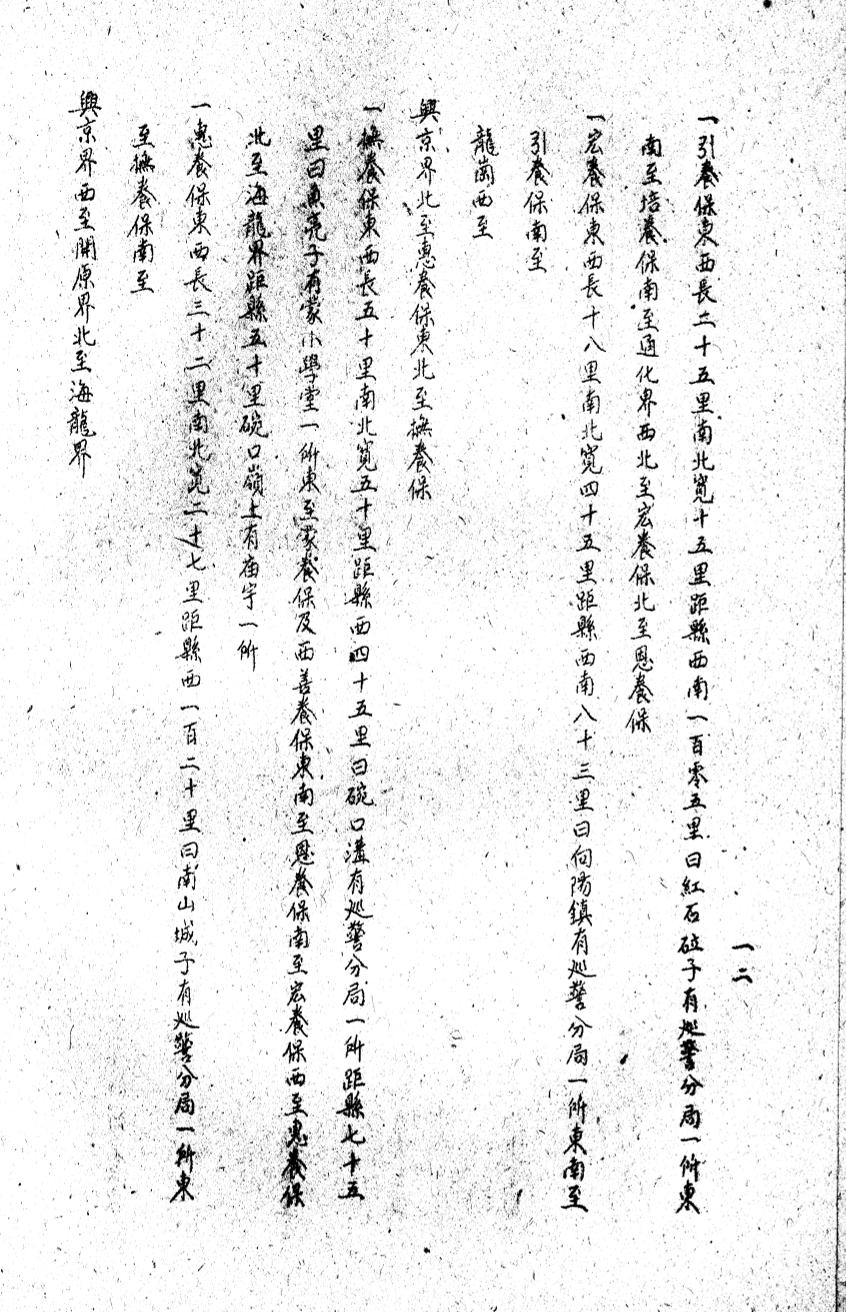 一引養保東西長二十五里南北寬十五里距縣西南一百零五里曰紅石砬子有巡警分局一所東
南至培養保南至通化界西北至宏養保北至恩養保
一宏養保東西長十八里南北寬四十五里距縣西南八十三里曰向陽鎮有巡警分局一所東南至
引養保南至
龍崗西至
興京界北至惠養保東北至撫養保
一撫養保東西長五十里南北寬五十里距縣西四十五里曰碗口溝有巡警分局一所距縣七十五
里曰魚亮子有蒙小學堂一所東至蒙養保及西善養保東南至恩養保南至宏養保西至惠養保
北至海龍界距縣五十里碗口嶺上有庙宇一所
一惠養保東西長三十二里南北寬二十七里距縣西一百二十里曰南山城子有巡警分局一所東
至撫養保南至
興京界西至開原界北至海龍界
一二